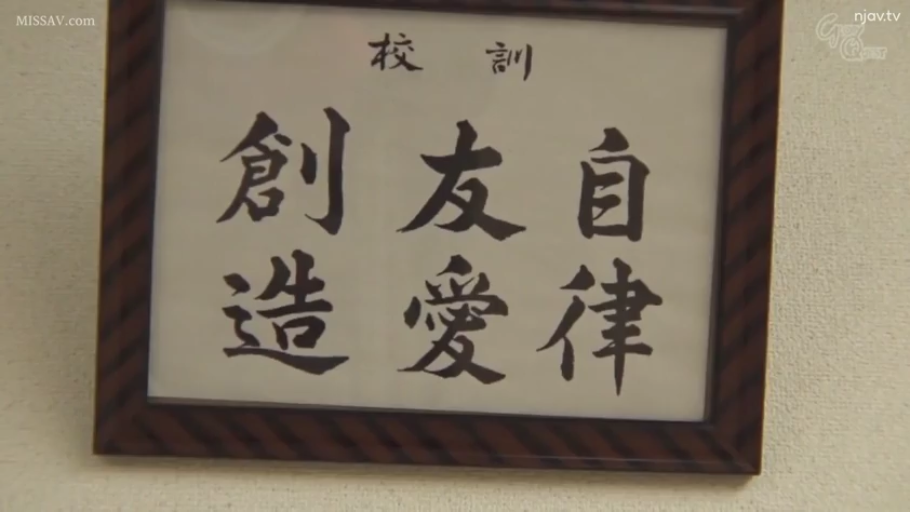 MISSAV.com
njav.tv
訓校
自律
友愛
創造